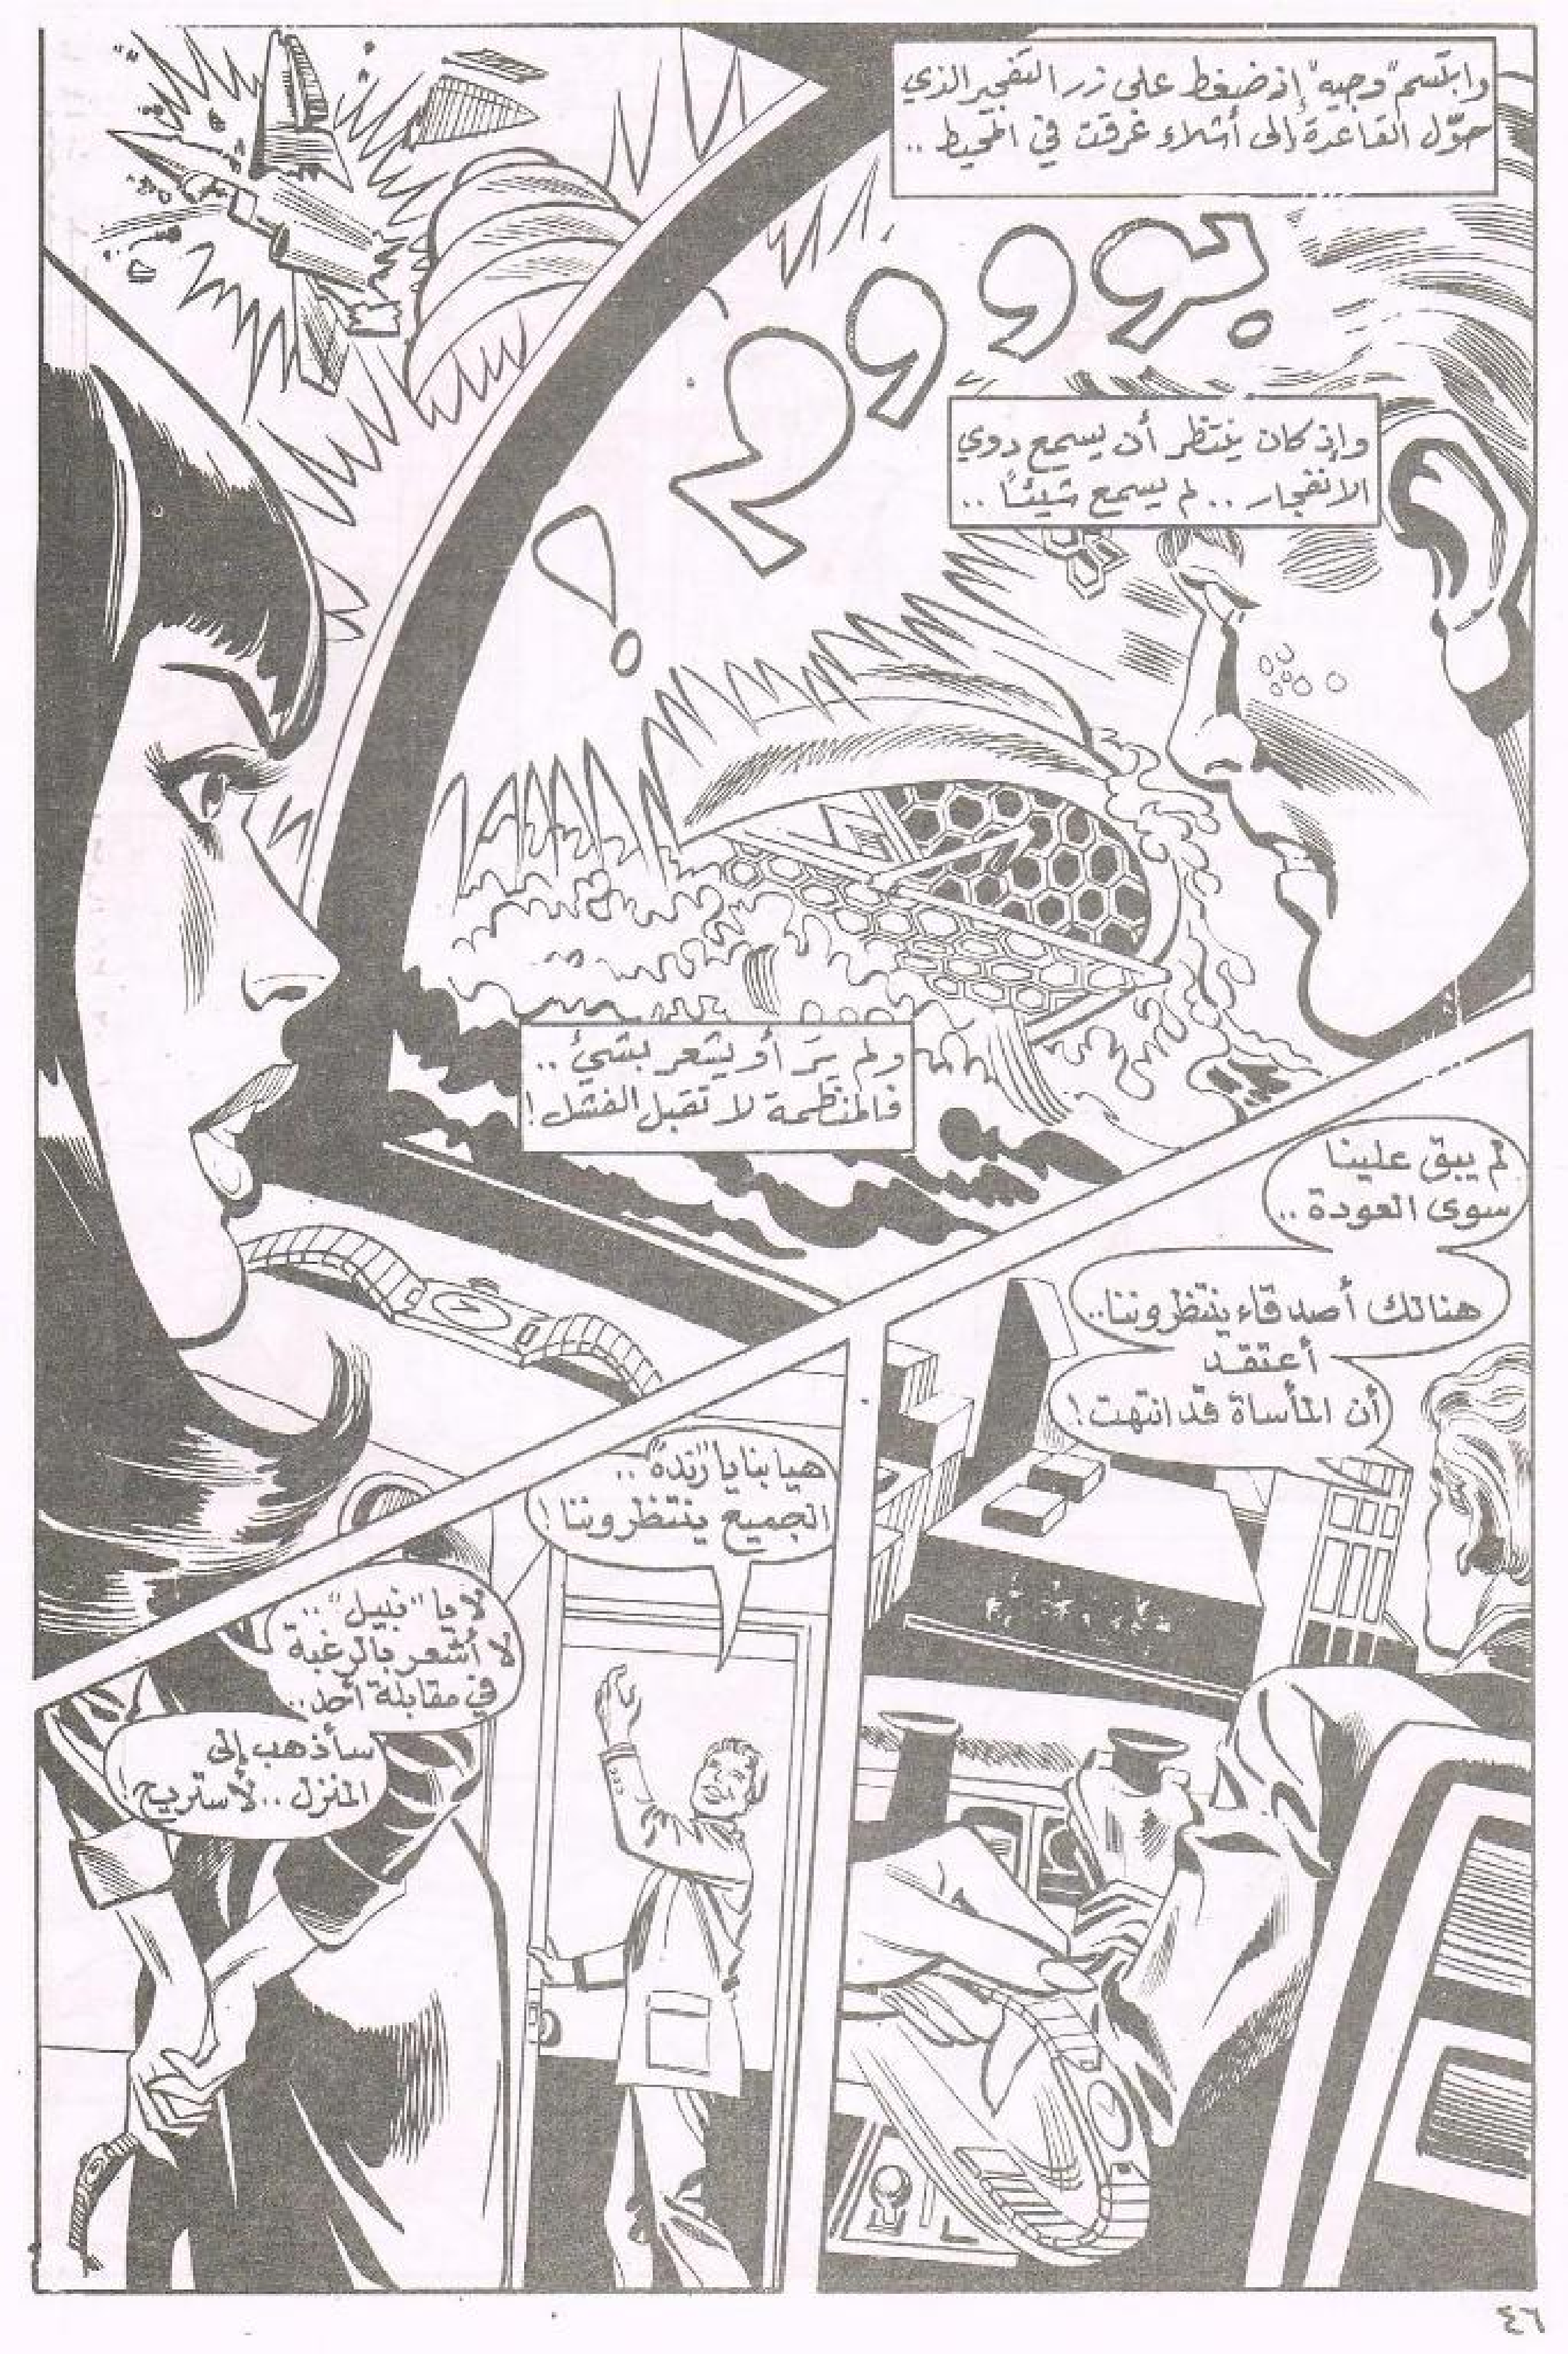 وابتسم "وجيه" إذ ضغط على زر التفجير الذي
حوّل القاعدة إلى أشلاء غرقت في المحيط ..
بووووم!
وإذ كان ينتظر أن يسمع دوي
الانفجار .. لم يسمع شيئاً ..
ولم يَرَ أو يشعر بشيءٍ ..
فالمنظمة لا تقبل الفشل!
لم يبق علينا
سوى العودة ..
هنالك أصدقاء ينتظروننا..
أعتقد
أن المأساة قد انتهت!
هيا بنا يا "رندة" ..
الجميع ينتظروننا!
لا يا "نبيل" ..
لا أشعر بالرغبة
في مقابلة أحد..
سأذهب إلى
المنزل .. لأستريح!
٤٦